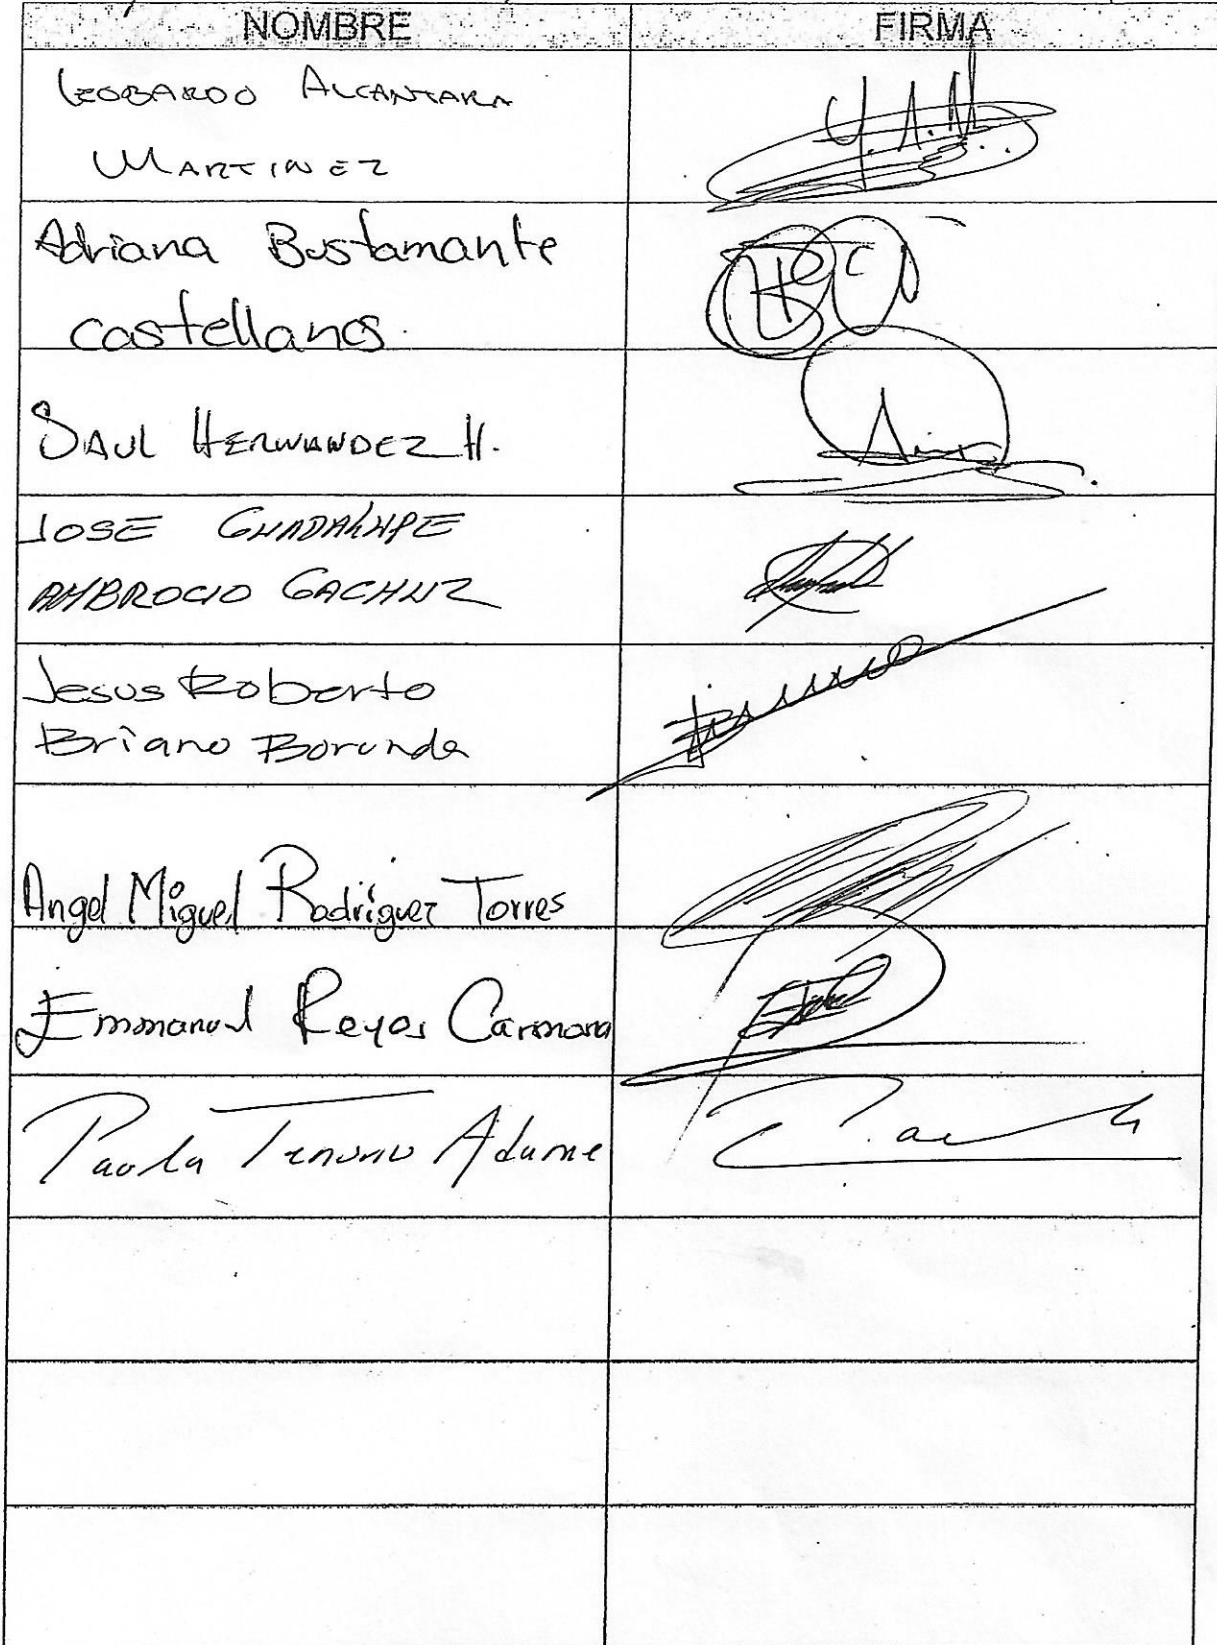 NOMBRE FIRMA
LEOBARDO ALCANTARA
MARTINEZ
Adriana Bustamante
Castellanos.
SAUL HERNANDEZ H.
JOSE GUADALUPE
AMBROCIO GACHUZ
Jesus Roberto
Briano Borunda
Angel Miguel Rodríguez Torres
Emmanuel Reyes Carmona
Paola Tenorio Adame